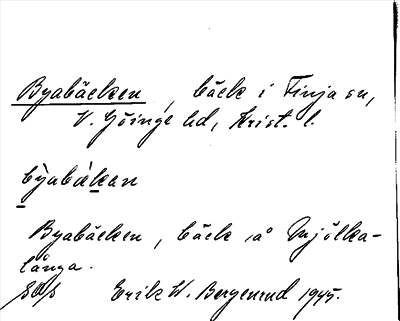 Byabäcken, bäck i Finja sn,
V. Göinge hd, Krist. l.
býabàkan
Byabäcken, bäck å Mjölka-
långa.
Erik W. Bergenrud 1945.